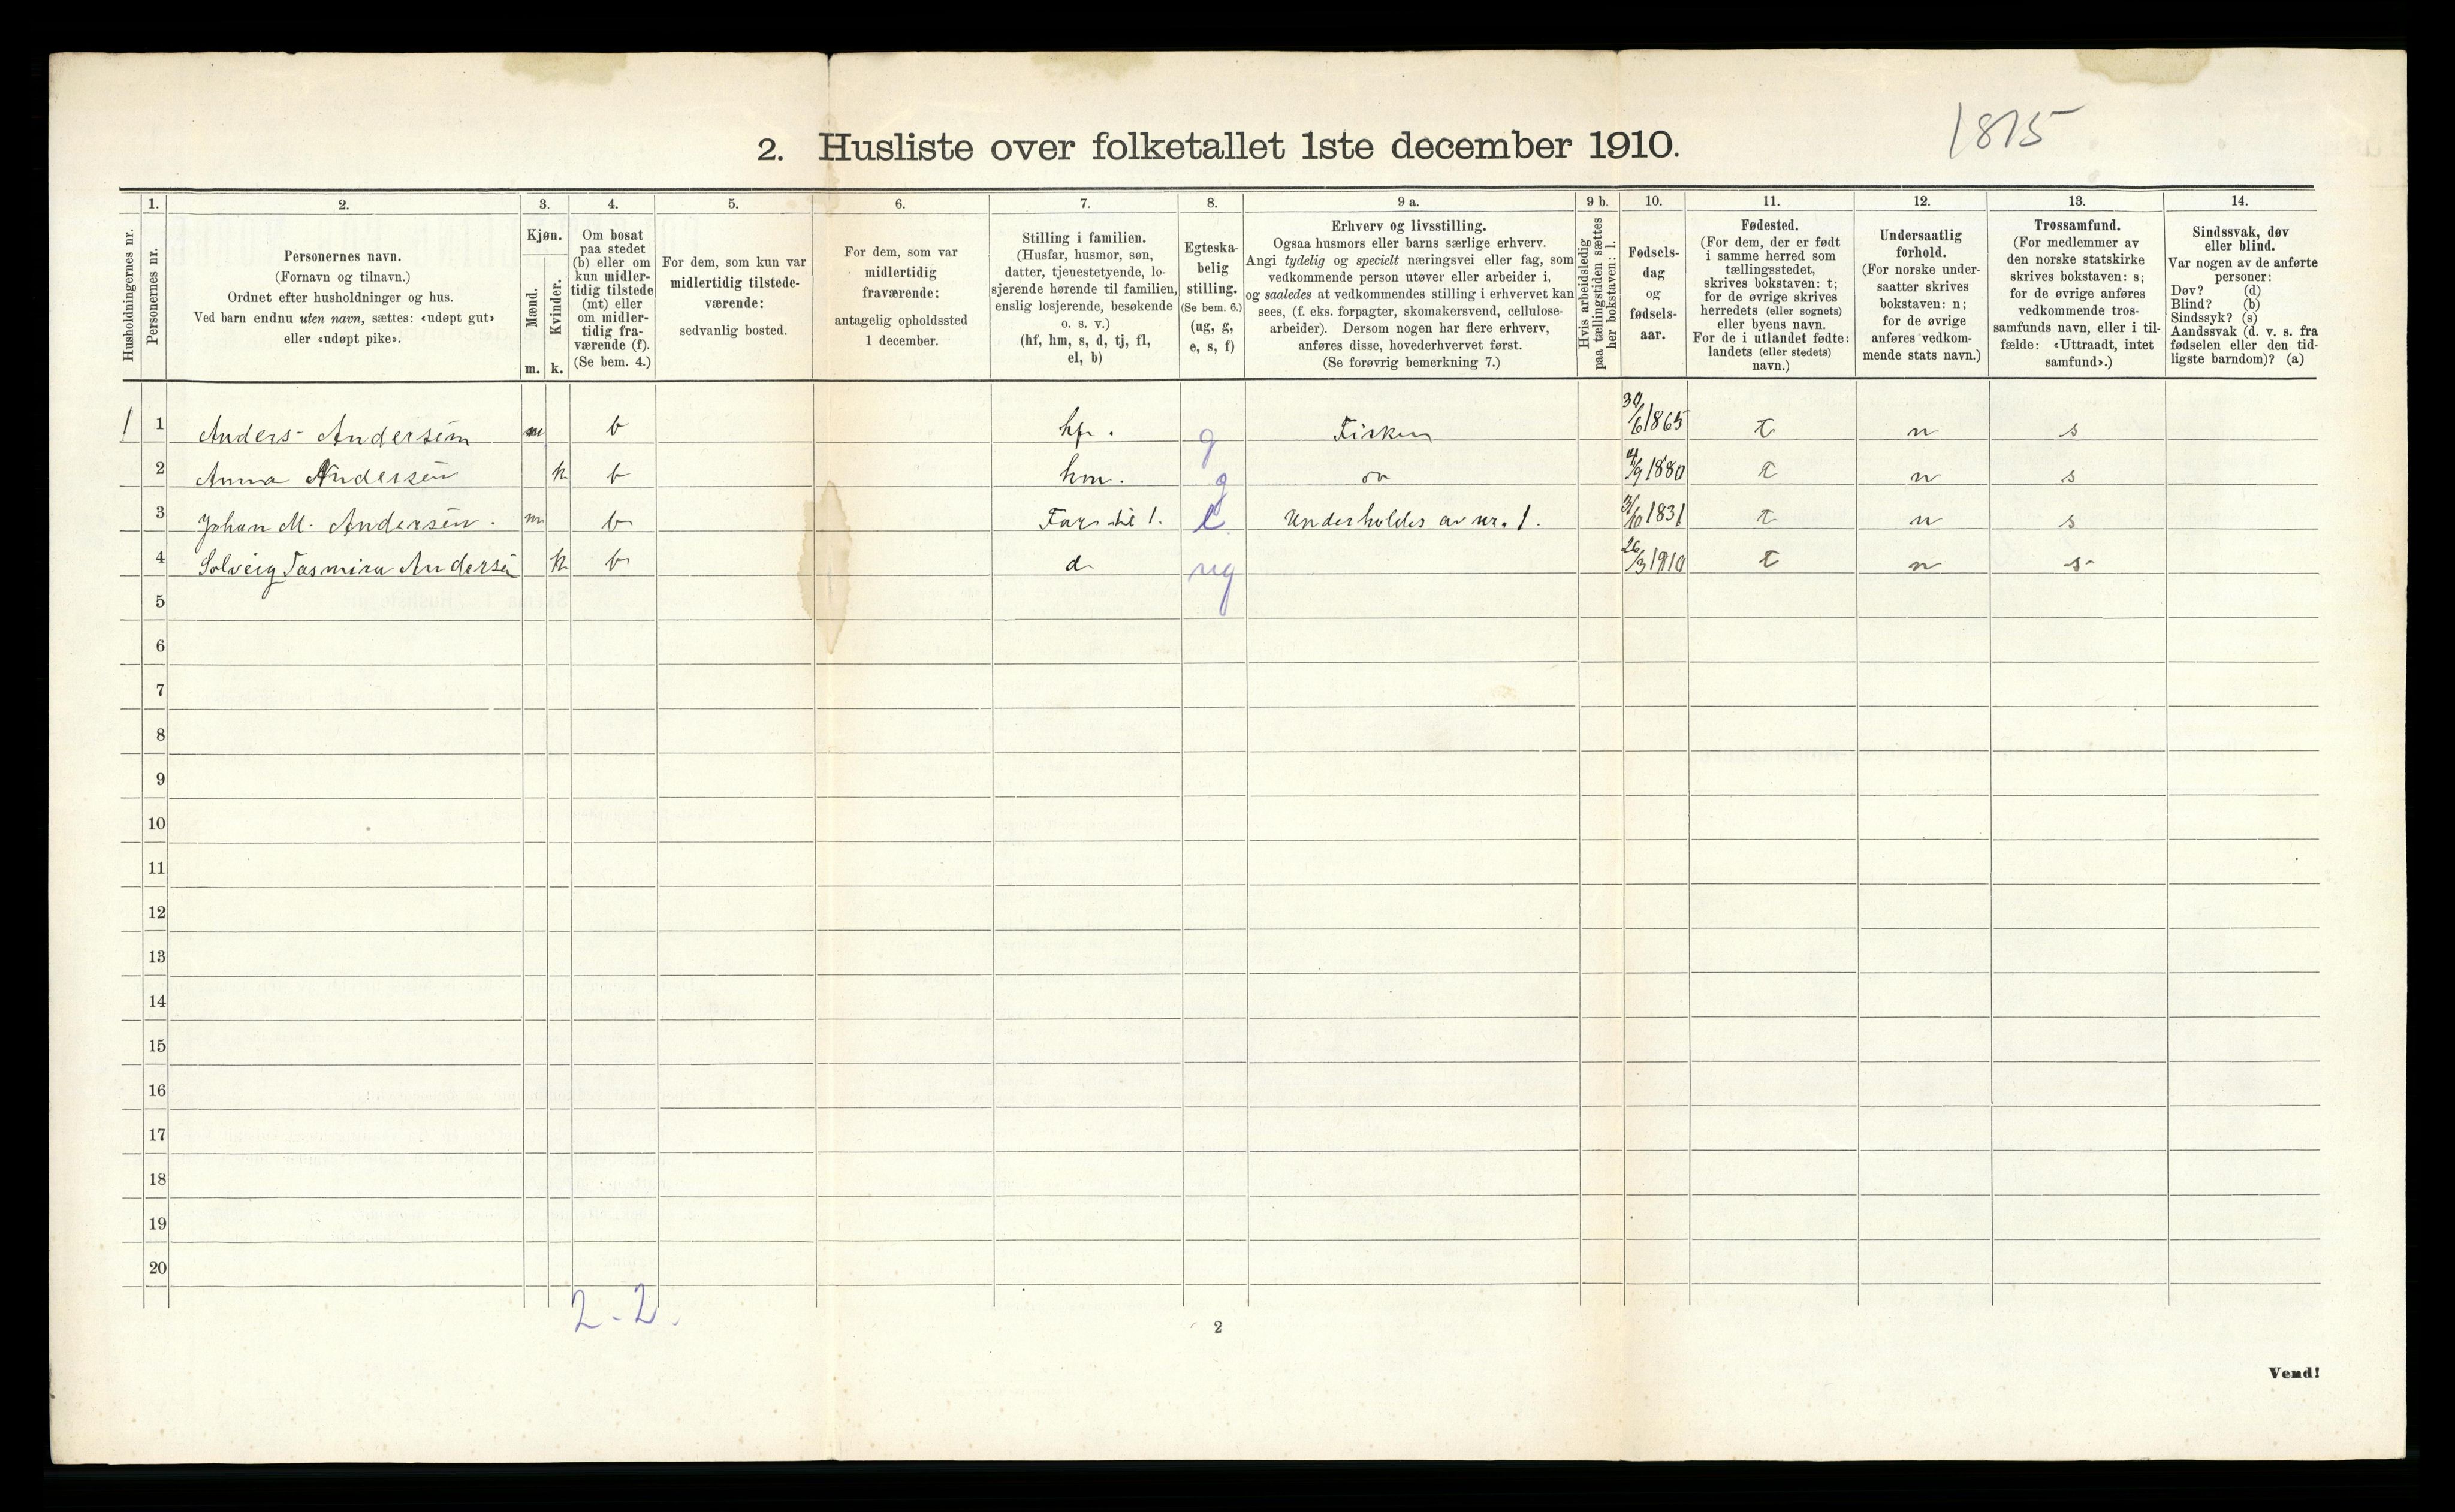 1875
2. Husliste over folketallet 1ste december 1910.
Husholdningernes nr.
1. Personernes nr.
2. Personernes navn.
(Fornavn og tilnavn.)
Ordnet efter husholdninger og hus.
Ved barn endnu uten navn, sættes: «udøpt gut»
eller «udøpt pike».
3. Kjøn.
Mænd. m.
Kvinder. k.
4. Om bosat
paa stedet
(b) eller om
kun midler-
tidig tilstede
(mt) eller
om midler-
tidig fra-
værende (f).
(Se bem. 4.)
5. For dem, som kun var
midlertidig tilstede-
værende:
sedvanlig bosted.
6. For dem, som var
midlertidig
fraværende:
antagelig opholdssted
1 december.
7. Stilling i familien.
(Husfar, husmor, søn,
datter, tjenestetyende, lo-
sjerende hørende til familien,
enslig losjerende, besøkende
o. s. v.)
(hf, hm, s, d, tj, fl,
el, b)
8. Egteska-
belig
stilling.
(Se bem. 6.)
(ug, g,
e, s, f)
9 a. Erhverv og livsstilling.
Ogsaa husmors eller barns særlige erhverv.
Angi tydelig og specielt næringsvei eller fag, som
vedkommende person utøver eller arbeider i,
og saaledes at vedkommendes stilling i erhvervet kan
sees, (f. eks. forpagter, skomakersvend, cellulose-
arbeider). Dersom nogen har flere erhverv,
anføres disse, hovederhvervet først.
(Se forøvrig bemerkning 7.)
9 b. Hvis arbeidsledig
paa tællingstiden sættes
her bokstaven: l.
10. Fødsels-
dag
og
fødsels-
aar.
11. Fødested.
(For dem, der er født
i samme herred som
tællingsstedet,
skrives bokstaven: t;
for de øvrige skrives
herredets (eller sognets)
eller byens navn.
For de i utlandet fødte:
landets (eller stedets)
navn.)
12. Undersaatlig
forhold.
(For norske under-
saatter skrives
bokstaven: n;
for de øvrige
anføres vedkom-
mende stats navn.)
13. Trossamfund.
(For medlemmer av
den norske statskirke
skrives bokstaven: s;
for de øvrige anføres
vedkommende tros-
samfunds navn, eller i til-
fælde: «Uttraadt, intet
samfund».)
14. Sindssvak, døv
eller blind.
Var nogen av de anførte
personer:
Døv? (d)
Blind? (b)
Sindssyk? (s)
Aandssvak (d. v. s. fra
fødselen eller den tid-
ligste barndom)? (a)
1 1 Anders Andersen m b hf. g Fisker 30/6 1865 t n s
2 Anna Andersen k b hm. g 4/9 1880 t n s
3 Johan M. Andersen. m b Far til 1. e Underholdes av nr. 1. 3/10 1831 t n s
4 Solveig Jasmira Andersen k b d ug 26/3 1910 t n s
5
6
7
8
9
10
11
12
13
14
15
16
17
18
19
20
2-2.
2
Vend!